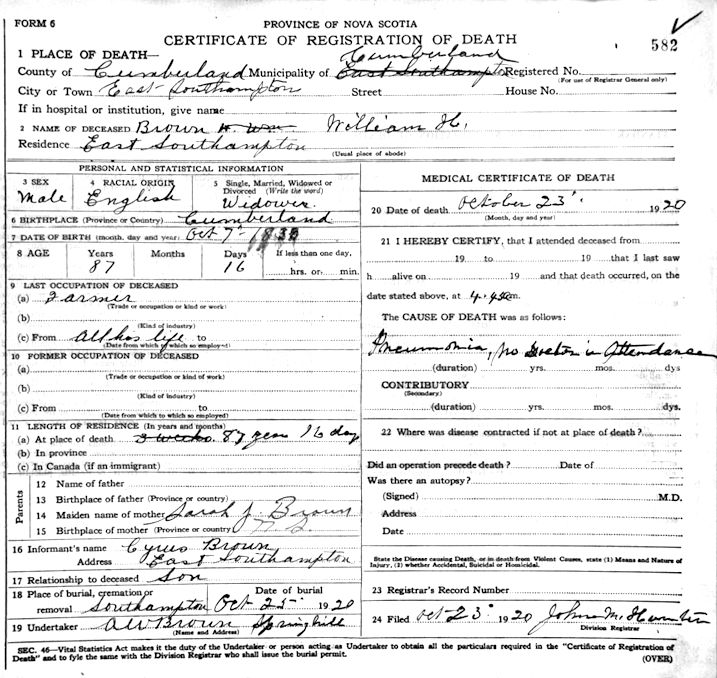 FORM 6
PROVINCE OF NOVA SCOTIA
CERTIFICATE OF REGISTRATION OF DEATH
582
1 PLACE OF DEATH—
Cumberland
County of Cumberland Municipality of East Southampton Registered No.
(For use of Registrar General only)
City or Town East Southampton Street House No.
If in hospital or institution, give name
2 NAME OF DECEASED Brown H. Wm. William H.
Residence East Southampton
(Usual place of abode)
PERSONAL AND STATISTICAL INFORMATION
3 SEX 4 RACIAL ORIGIN 5 Single, Married, Widowed or Divorced (Write the word)
Male English Widower
6 BIRTHPLACE (Province or Country) Cumberland
7 DATE OF BIRTH (month, day and year) Oct 7th
8 AGE Years Months Days If less than one day,
87 16 hrs. or min.
9 LAST OCCUPATION OF DECEASED
(a) Farmer
(Trade or occupation or kind or work)
(b)
(Kind of industry)
(c) From All his life to
(Date from which to which so employed)
10 FORMER OCCUPATION OF DECEASED
(a)
(Trade or occupation or kind of work)
(b)
(Kind of industry)
(c) From to
(Date from which to which so employed)
11 LENGTH OF RESIDENCE (In years and months)
(a) At place of death 3 weeks. 87 years 16 day
(b) In province
(c) In Canada (if an immigrant)
Parents
12 Name of father
13 Birthplace of father (Province or country)
14 Maiden name of mother Sarah J. Brown
15 Birthplace of mother (Province or country) N.S.
16 Informant's name Cyrus Brown
Address East Southampton
17 Relationship to deceased Son
18 Place of burial, cremation or Date of burial
removal Southampton Oct 25 1920
19 Undertaker A W Brown Springhill
(Name and Address)
MEDICAL CERTIFICATE OF DEATH
20 Date of death October 23 1920
(Month, day and year)
21 I HEREBY CERTIFY, that I attended deceased from
19 to 19 that I last saw
h alive on 19 and that death occurred, on the
date stated above, at m.
The CAUSE OF DEATH was as follows:
Pneumonia, no Doctor in Attendance
(duration) yrs. mos. dys
CONTRIBUTORY
(Secondary)
(duration) yrs. mos. dys.
22 Where was disease contracted if not at place of death?
Did an operation precede death? Date of
Was there an autopsy?
(Signed) M.D.
Address
Date
State the Disease causing Death, or in death from Violent Causes, state (1) Means and Nature of
Injury, (2) whether Accidental, Suicidal or Homicidal.
23 Registrar's Record Number
24 Filed Oct 23 1920 John M. Hunter
Division Registrar
SEC. 46—Vital Statistics Act makes it the duty of the Undertaker or person acting as Undertaker to obtain all the particulars required in the "Certificate of Registration of
Death" and to fyle the same with the Division Registrar who shall issue the burial permit.
(OVER)